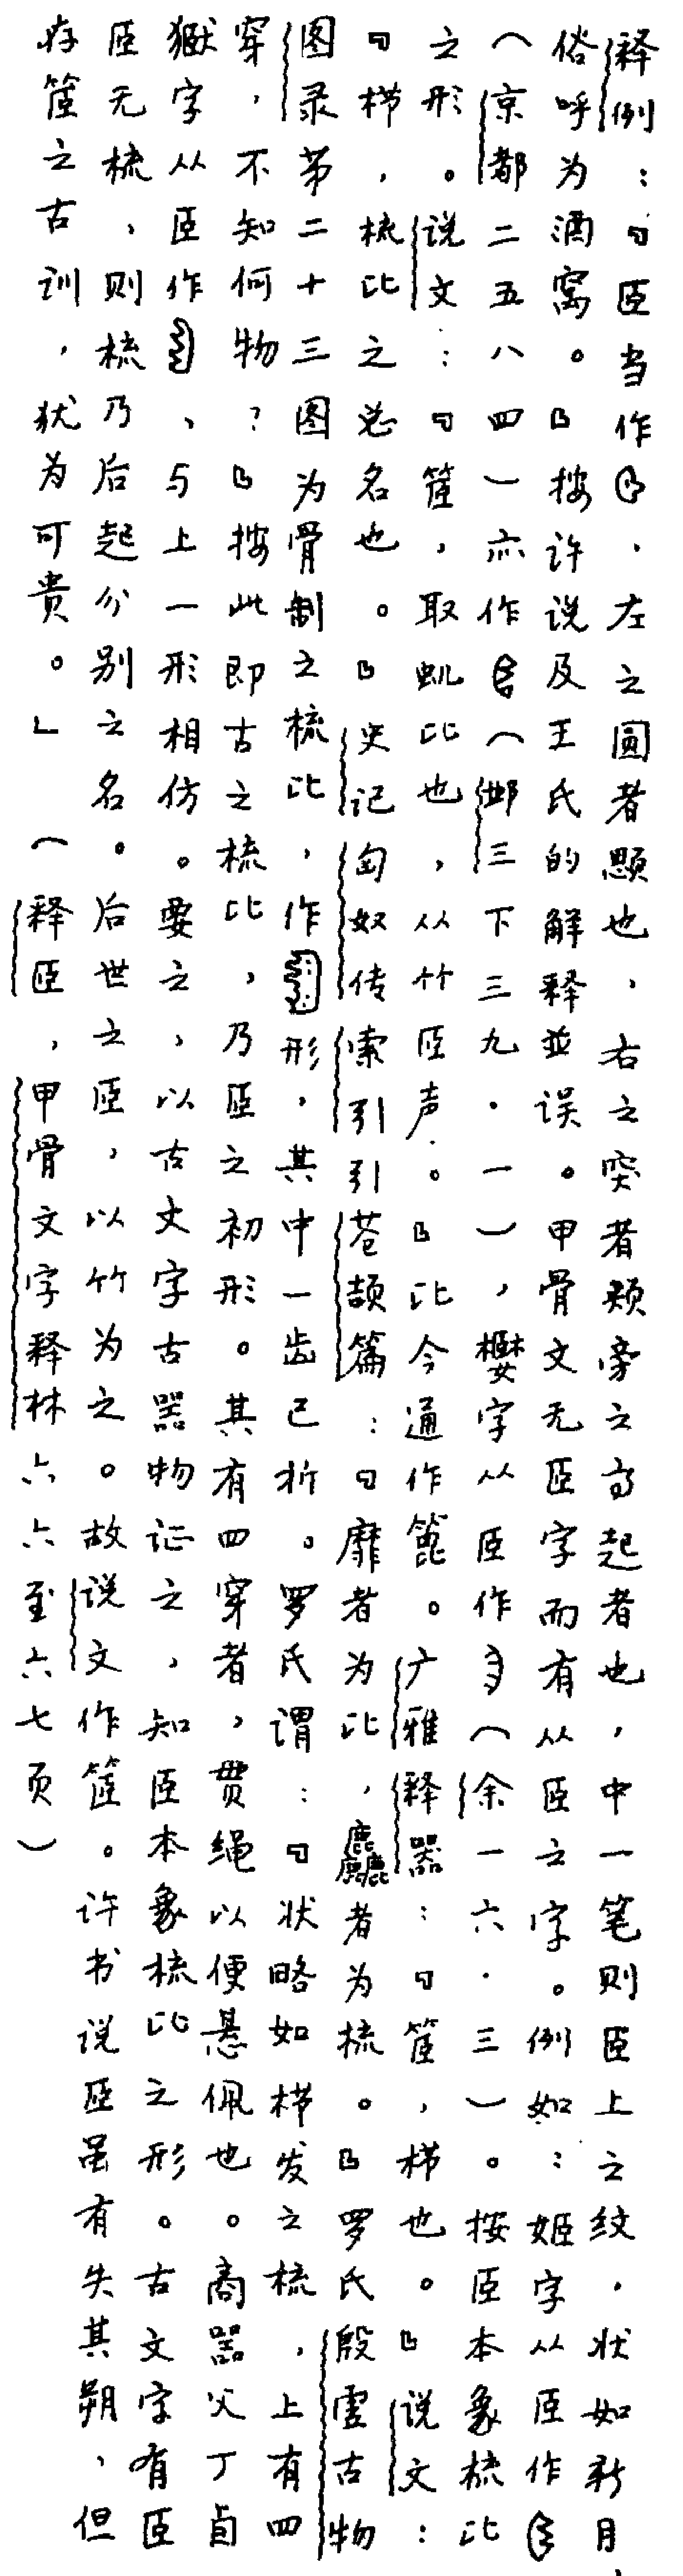 释例：『𦣞当作，左之圆者顋也，右之突者颊旁之高起者也，中一笔则𦣞上之纹，状如新月，
俗呼为酒窝。』按许说及王氏的解释並误。甲骨文无𦣞字而有从𦣞之字。例如：姬字从𦣞作
（京都二五八四）亦作（邺三下三九·一），字从𦣞作（余一六·三）。按𦣞本象梳比
之形。说文：『䇫，取虮比也，从竹𦣞声。』比今通作篦。广雅释器：『䇫，栉也。』说文：
『栉，梳比之总名也。』史记匈奴传索引引苍颉篇：『靡者为比，麤者为梳。』罗氏殷虚古物
图录第二十三图为骨制之梳比，作形，其中一齿已折。罗氏谓：『状略如栉发之梳，上有四
穿，不知何物？』按此即古之梳比，乃𦣞之初形。其有四穿者，贯绳以便悬佩也。商器父丁卣
字从𦣞作，与上一形相仿。要之，以古文字古器物证之，知𦣞本象梳比之形。古文字有𦣞
𦣞无梳，则梳乃后起分别之名。后世之𦣞，以竹为之。故说文作䇫。许书说𦣞虽有失其朔，但
存䇫之古训，犹为可贵。」（释𦣞，甲骨文字释林六六至六七页）